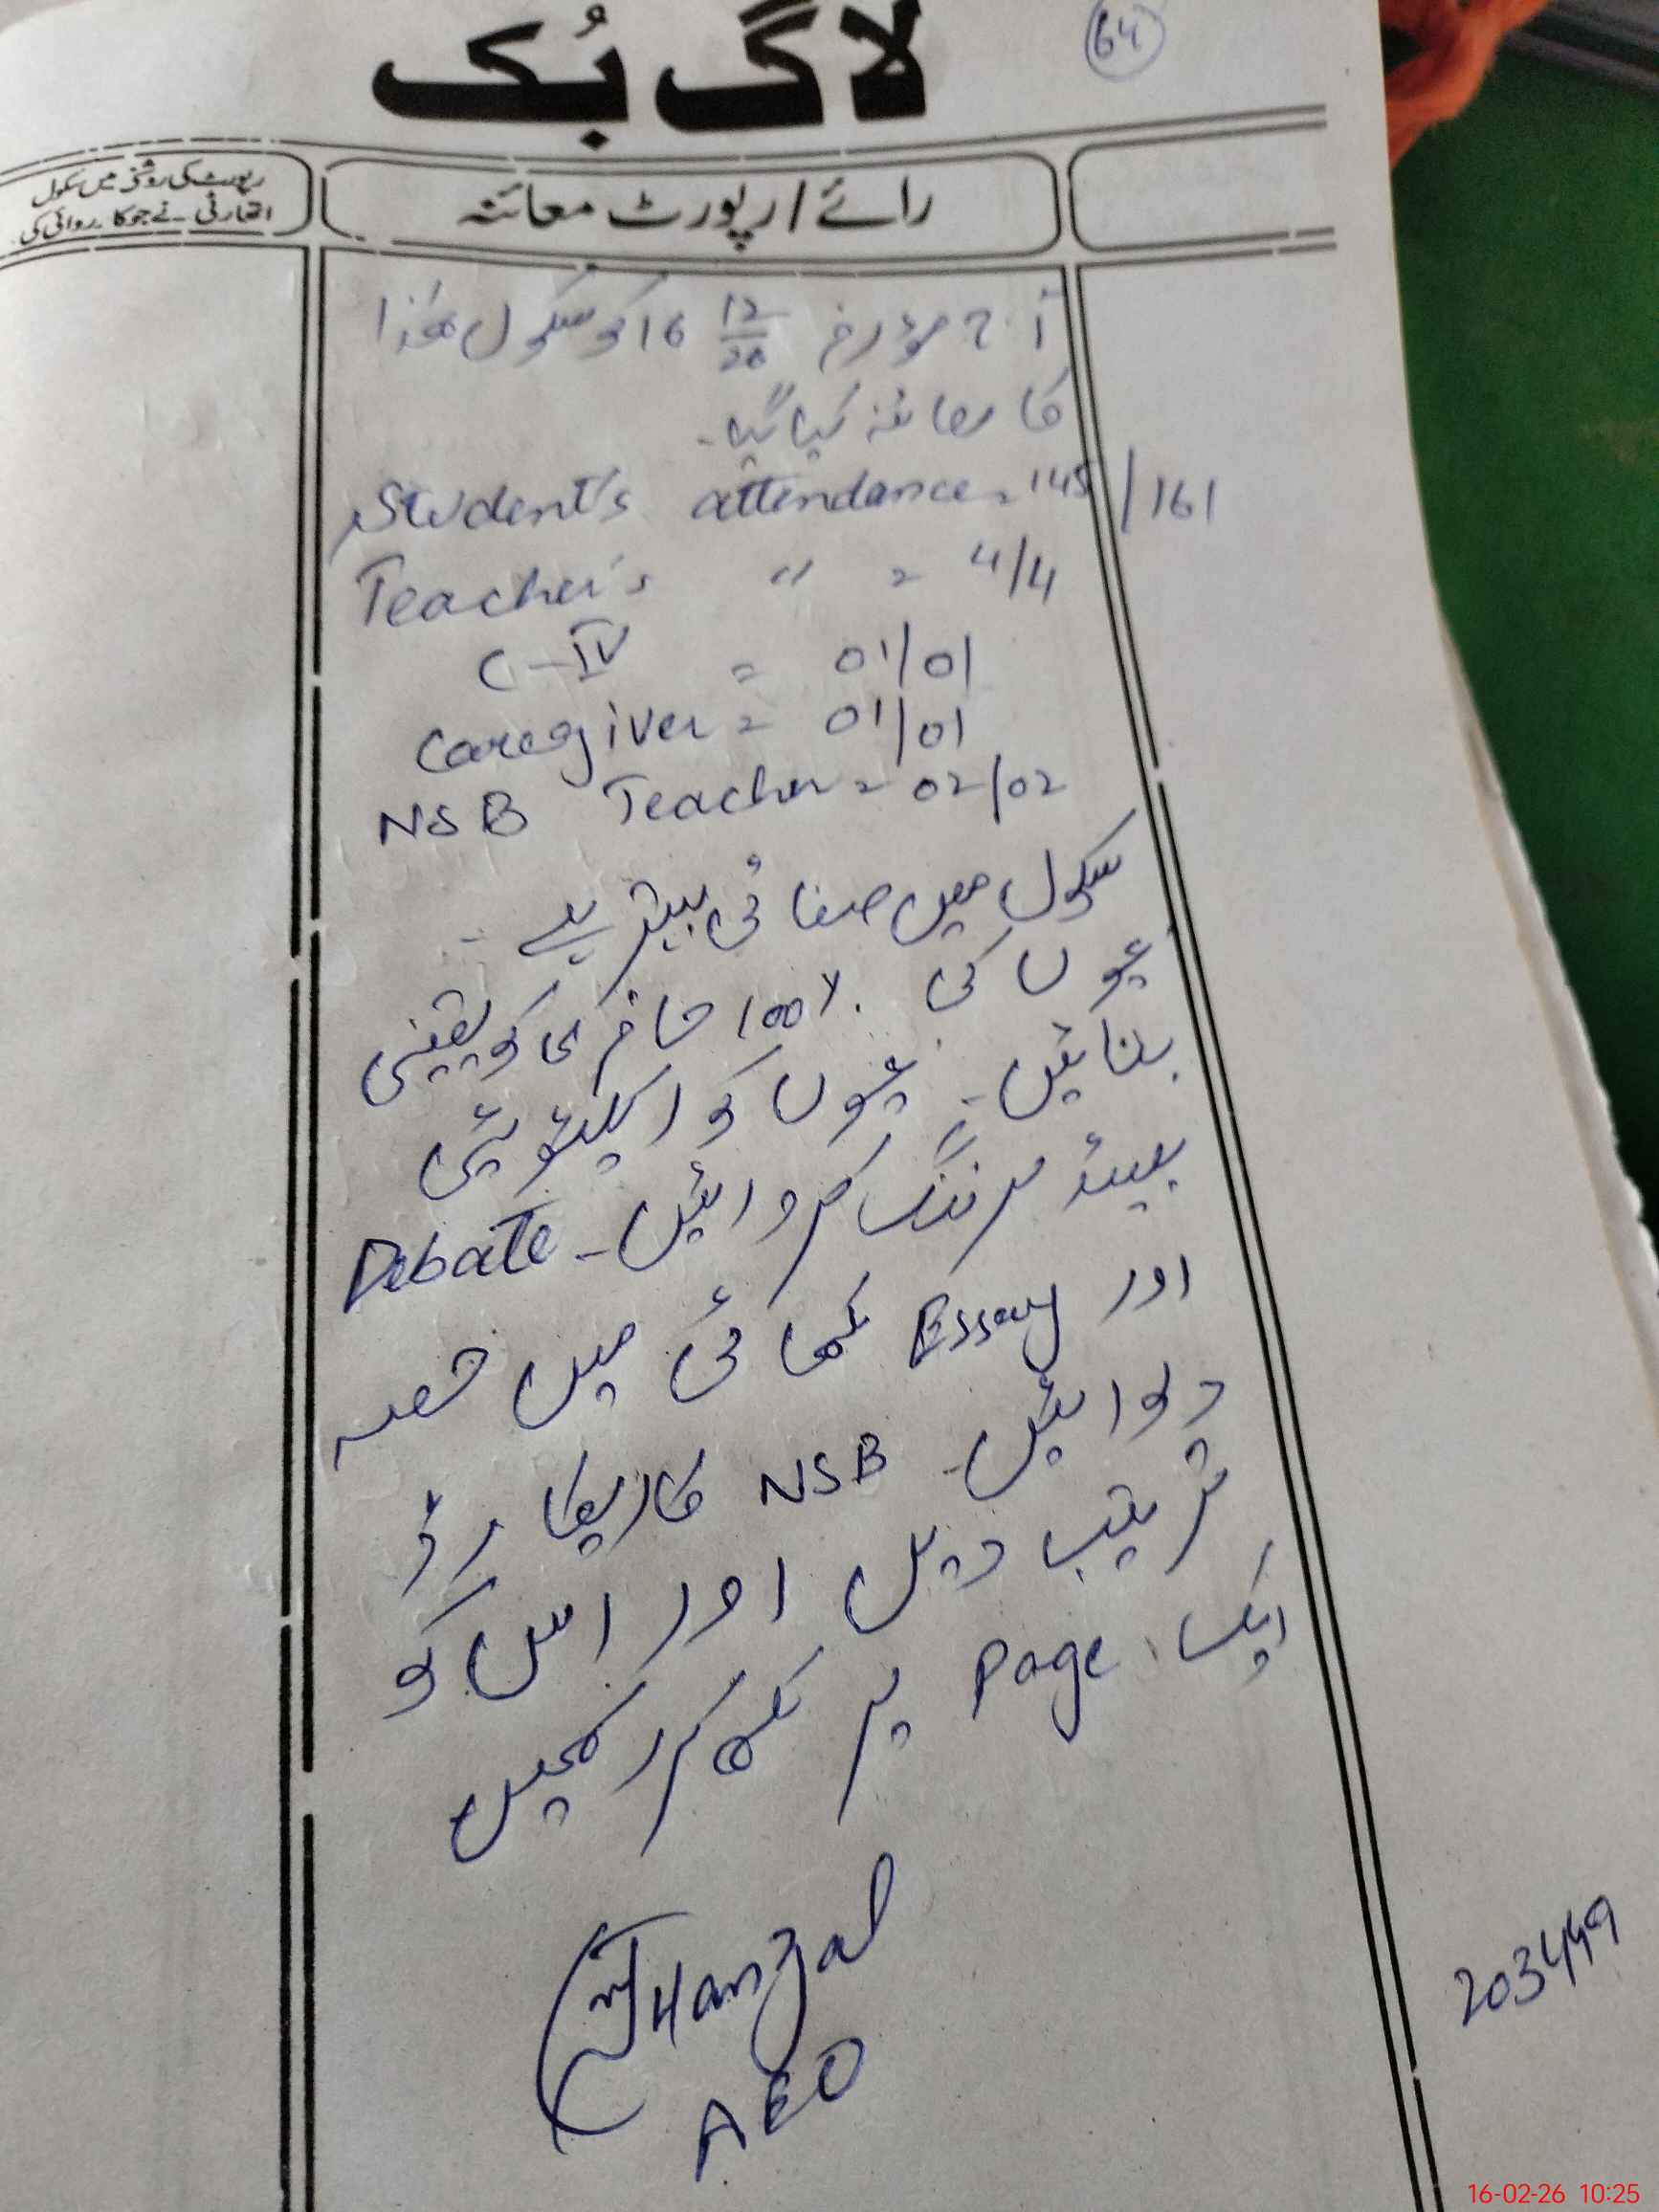 64
لاگ بُک
رائے / رپورٹ معائنہ
رپورٹ کی روشنی میں سکول
اتھارٹی نے جو کارروائی کی
آج مؤرخہ 16 12/26 کو سکول ھٰذا
کا معائنہ کیا گیا۔
Student's attendance = 145/161
Teacher's " = 4/4
C-IV = 01/01
Caregiver = 01/01
NSB Teacher = 02/02
سکول میں صفائی بہتر ہے۔
بچوں کی 100% حاضری کو یقینی
بنائیں۔ بچوں کو ایکٹیویٹی
بیسڈ لرننگ کروائیں۔ Debate
اور Essay لکھائی میں حصہ
دلوائیں۔ NSB کا ریکارڈ
ترتیب دیں اور اس کو
ایک Page پر لکھ کر رکھیں
Hanzal
AEO
203449
16-02-26 10:25